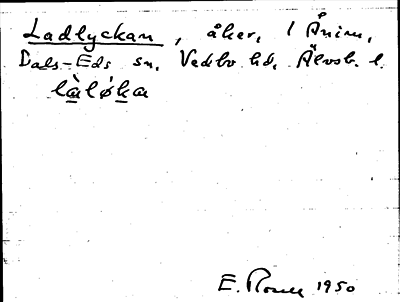 Ladlyckan, åker, 1 Ånim,
Dals-Eds sn, Vedbo hd, Älvsb. l.
làløka
E. 1950